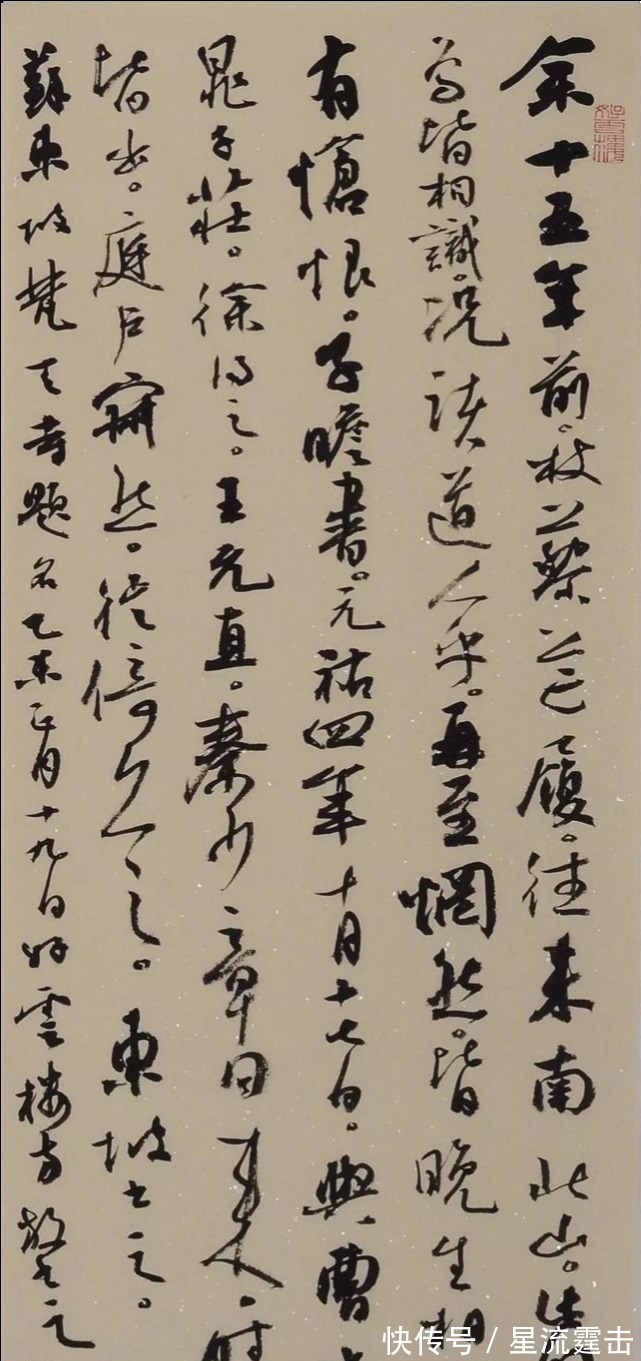 余十五年前。杖藜芒履。往来南北山。
鳥皆相識。况諸道人乎。再至惘然。皆晚生相
有愴恨。子瞻書。元祐四年十月十七日。與曹
晁子莊。徐得之。王元直。秦少章同来。時
皆出。庭户寂然。徙倚久之。東坡書之。
蘇東坡梵天寺題名乙未正月十九日好雲楼
快传号／星流霆击